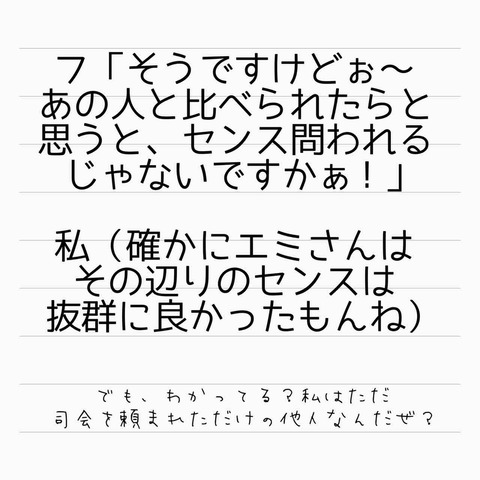 フ「そうですけどぉ〜
あの人と比べられたらと
思うと、センス問われる
じゃないですかぁ！」
私（確かにエミさんは
その辺りのセンスは
抜群に良かったもんね）
でも、わかってる？私はただ
司会を頼まれただけの他人なんだぜ？